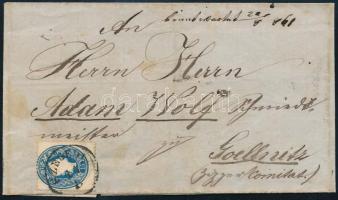 An
beantwortet 22/6 861
Herrn Herrn
Adam Wolf Schmiedt
meister
zu
Goellnitz
(Zipser Comitat.)